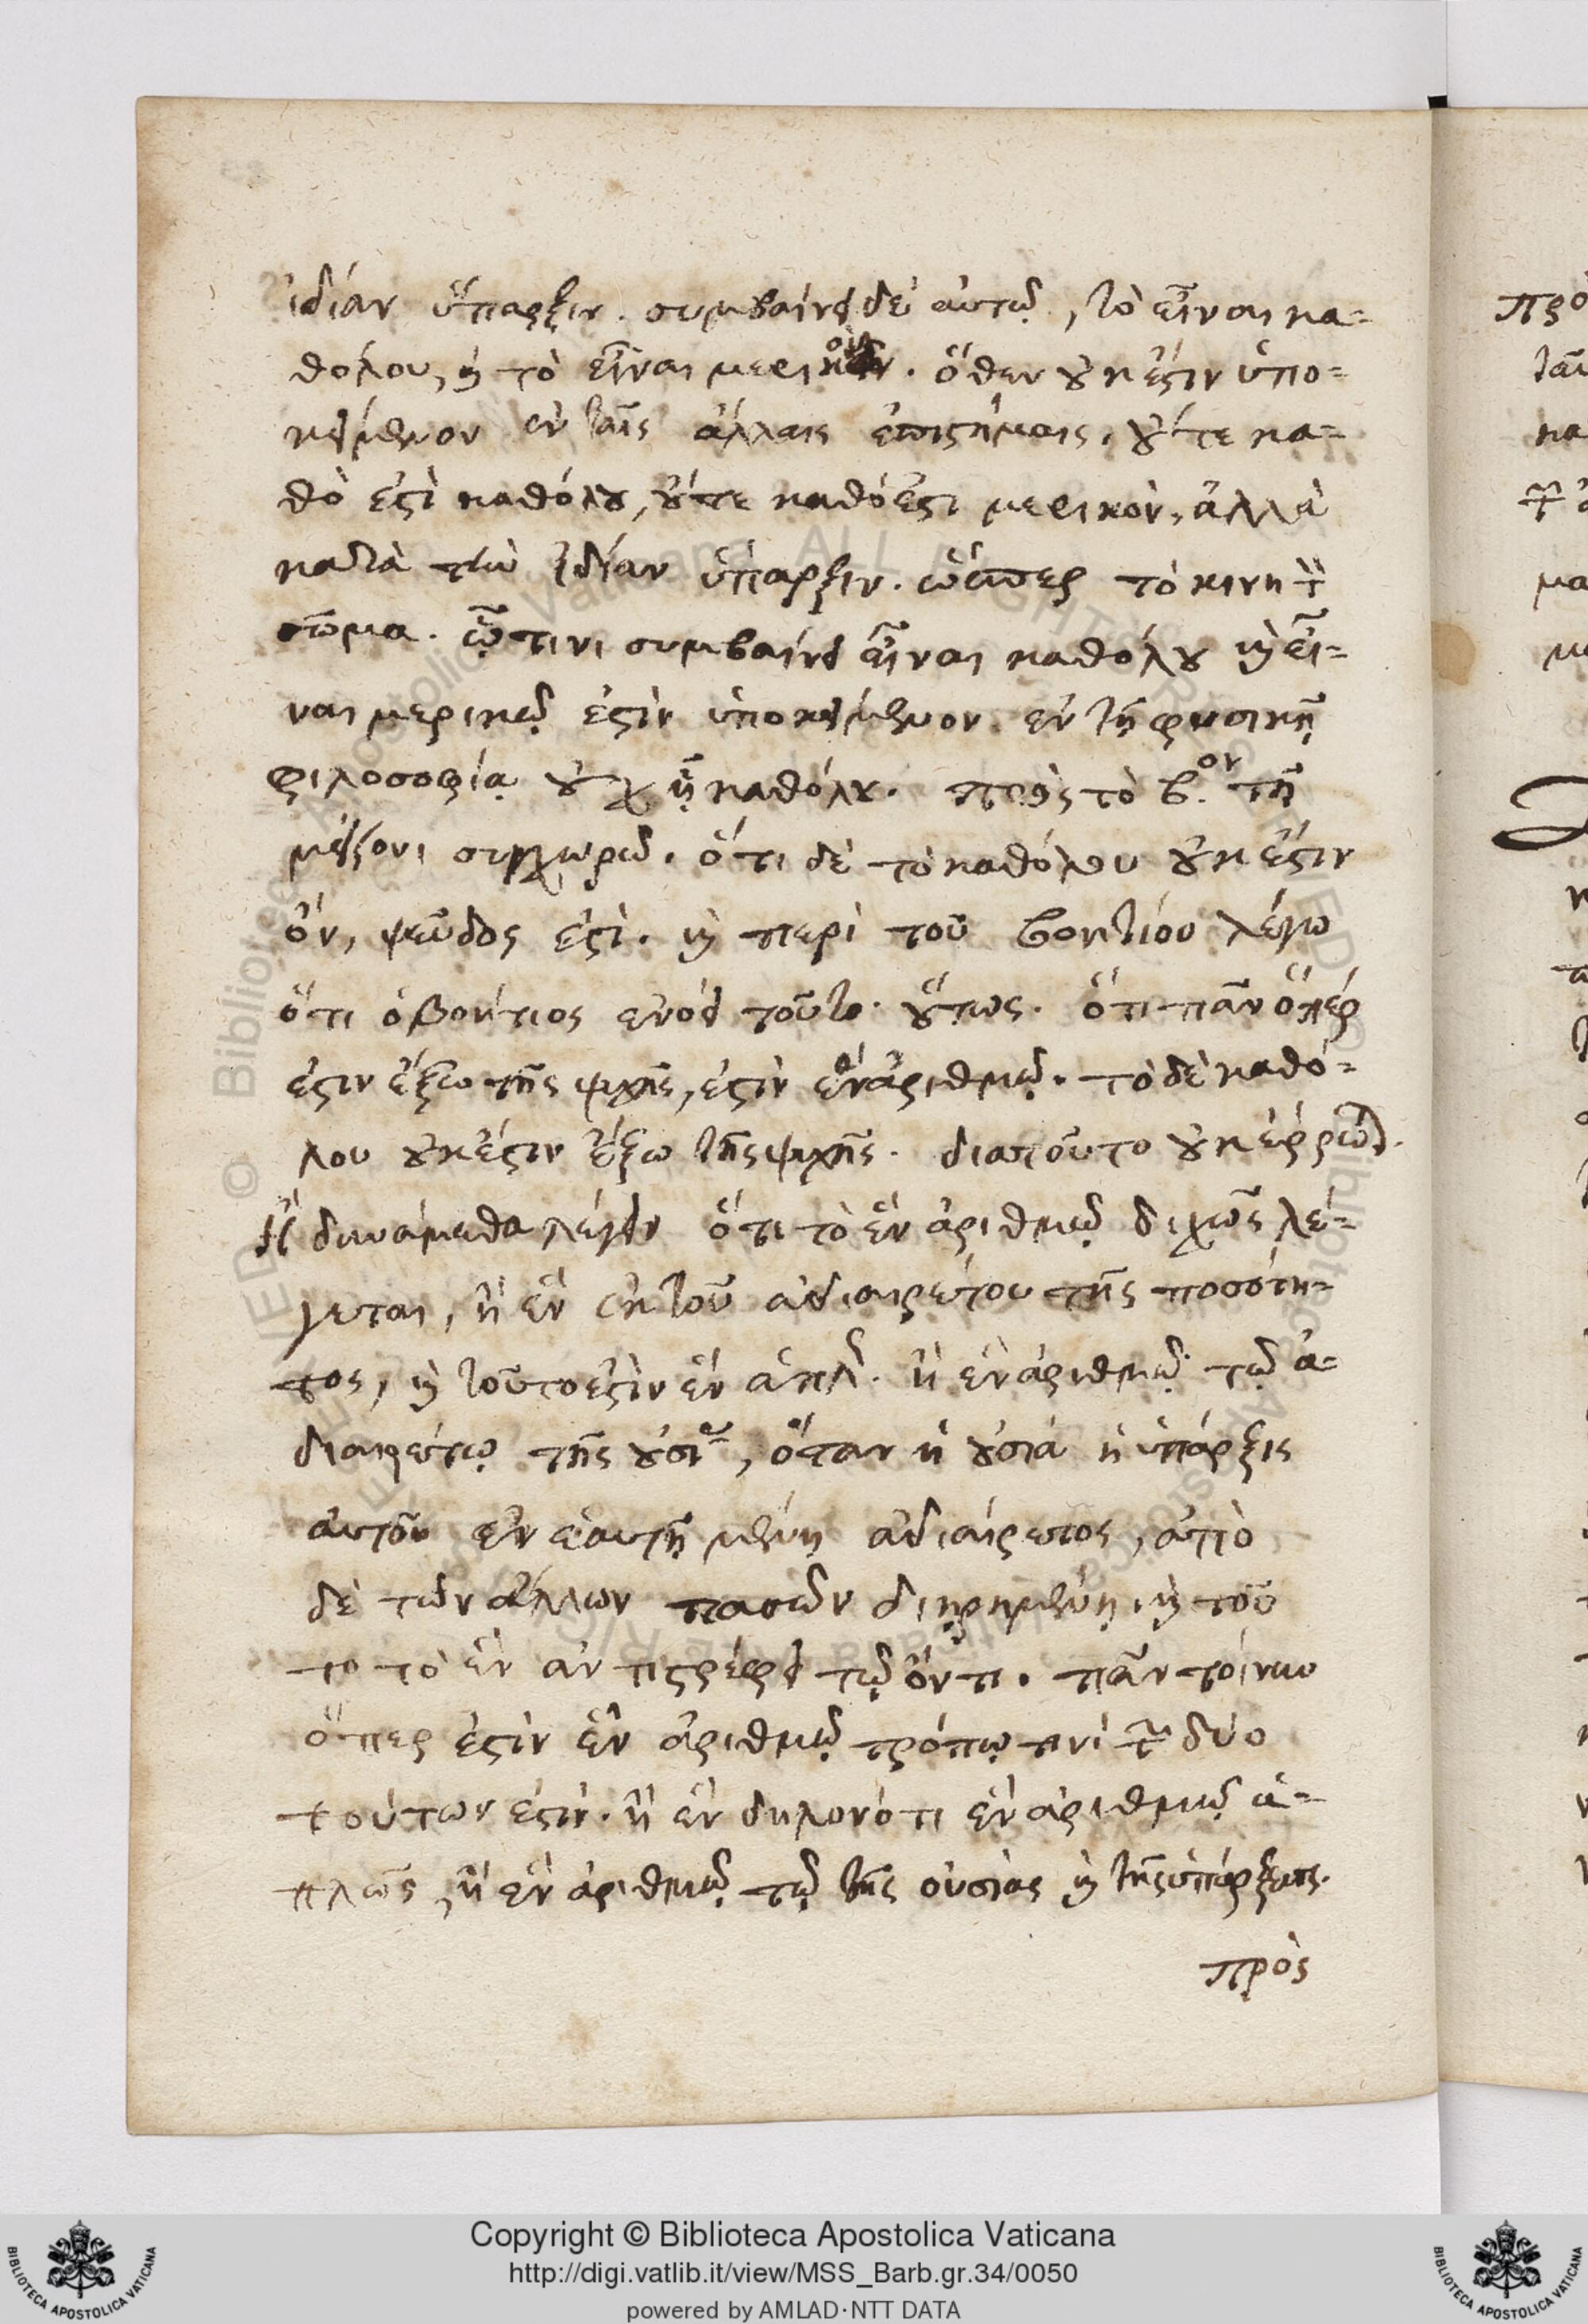 ἰδίαν ὕπαρξιν. συμβαίνει δὲ αὐτῷ, τὸ εἶναι κα=
θόλου, καὶ τὸ εἶναι μερικὸν. ὅθεν οὐκ ἔστιν ὑπο=
κείμενον ἐν ταῖς ἄλλαις ἐπιστήμαις, οὔτε κα=
θὸ ἐστὶ καθόλου, οὔτε καθό ἐστι μερικὸν, ἀλλὰ
κατὰ τὴν ἰδίαν ὕπαρξιν. ὥσπερ τὸ κινητὸν
σῶμα. ᾧτινι συμβαίνει εἶναι καθόλου καὶ εἶ=
ναι μερικῷ ἐστὶν ὑποκείμενον ἐν τῇ φυσικῇ
φιλοσοφίᾳ οὐχ ᾗ καθόλου. πρὸς τὸ β.ον τῇ
μείζονι συγχωρῶ. ὅτι δὲ τὸ καθόλου οὐκ ἔστιν
ὄν, ψεῦδος ἐστί. καὶ περὶ τοῦ βοητίου λέγω
ὅτι ὁ βοήτιος ἐνόει τοῦτο οὕτως. ὅτι πᾶν ὅπερ
ἐστιν ἔξω τῆς ψυχῆς, ἐστὶν ἓν ἀριθμῷ. τὸ δὲ καθό=
λου οὐκ ἔστιν ἔξω τῆς ψυχῆς. διατοῦτο οὐκ
Ἢ δυνάμεθα λέγειν ὅτι τὸ ἓν ἀριθμῷ διχῶς λέ=
γεται, ἢ ἓν ἐκ τοῦ ἀδιαιρέτου τῆς ποσότη=
τος, καὶ τοῦτο ἐστὶν ἓν ἁπλῶς. ἢ ἓν ἀριθμῷ τῷ ἀ=
διαιρέτῳ τῆς οὐσίας, ὅταν ἡ οὐσία ἡ ὕπαρξις
αὐτοῦ ἐν ἑαυτῇ μένῃ ἀδιαίρετος, ἀπὸ
δὲ τῶν ἄλλων πασῶν διῃρημένη, καὶ τοῦ
το τὸ ἓν ἀντιστρέφει τῷ ὄντι. πᾶν τοίνυν
ὅπερ ἐστὶν ἓν ἀριθμῷ τρόπῳ τινὶ τῶν δύο
τούτων ἐστίν. ἢ ἓν δηλονότι ἓν ἀριθμῷ ἁ=
πλῶς, ἢ ἓν ἀριθμῷ τῷ τῆς οὐσίας καὶ τῆς ὑπάρξεως.
πρὸς
Copyright © Biblioteca Apostolica Vaticana
http://digi.vatlib.it/view/MSS_Barb.gr.34/0050
powered by AMLAD·NTT DATA